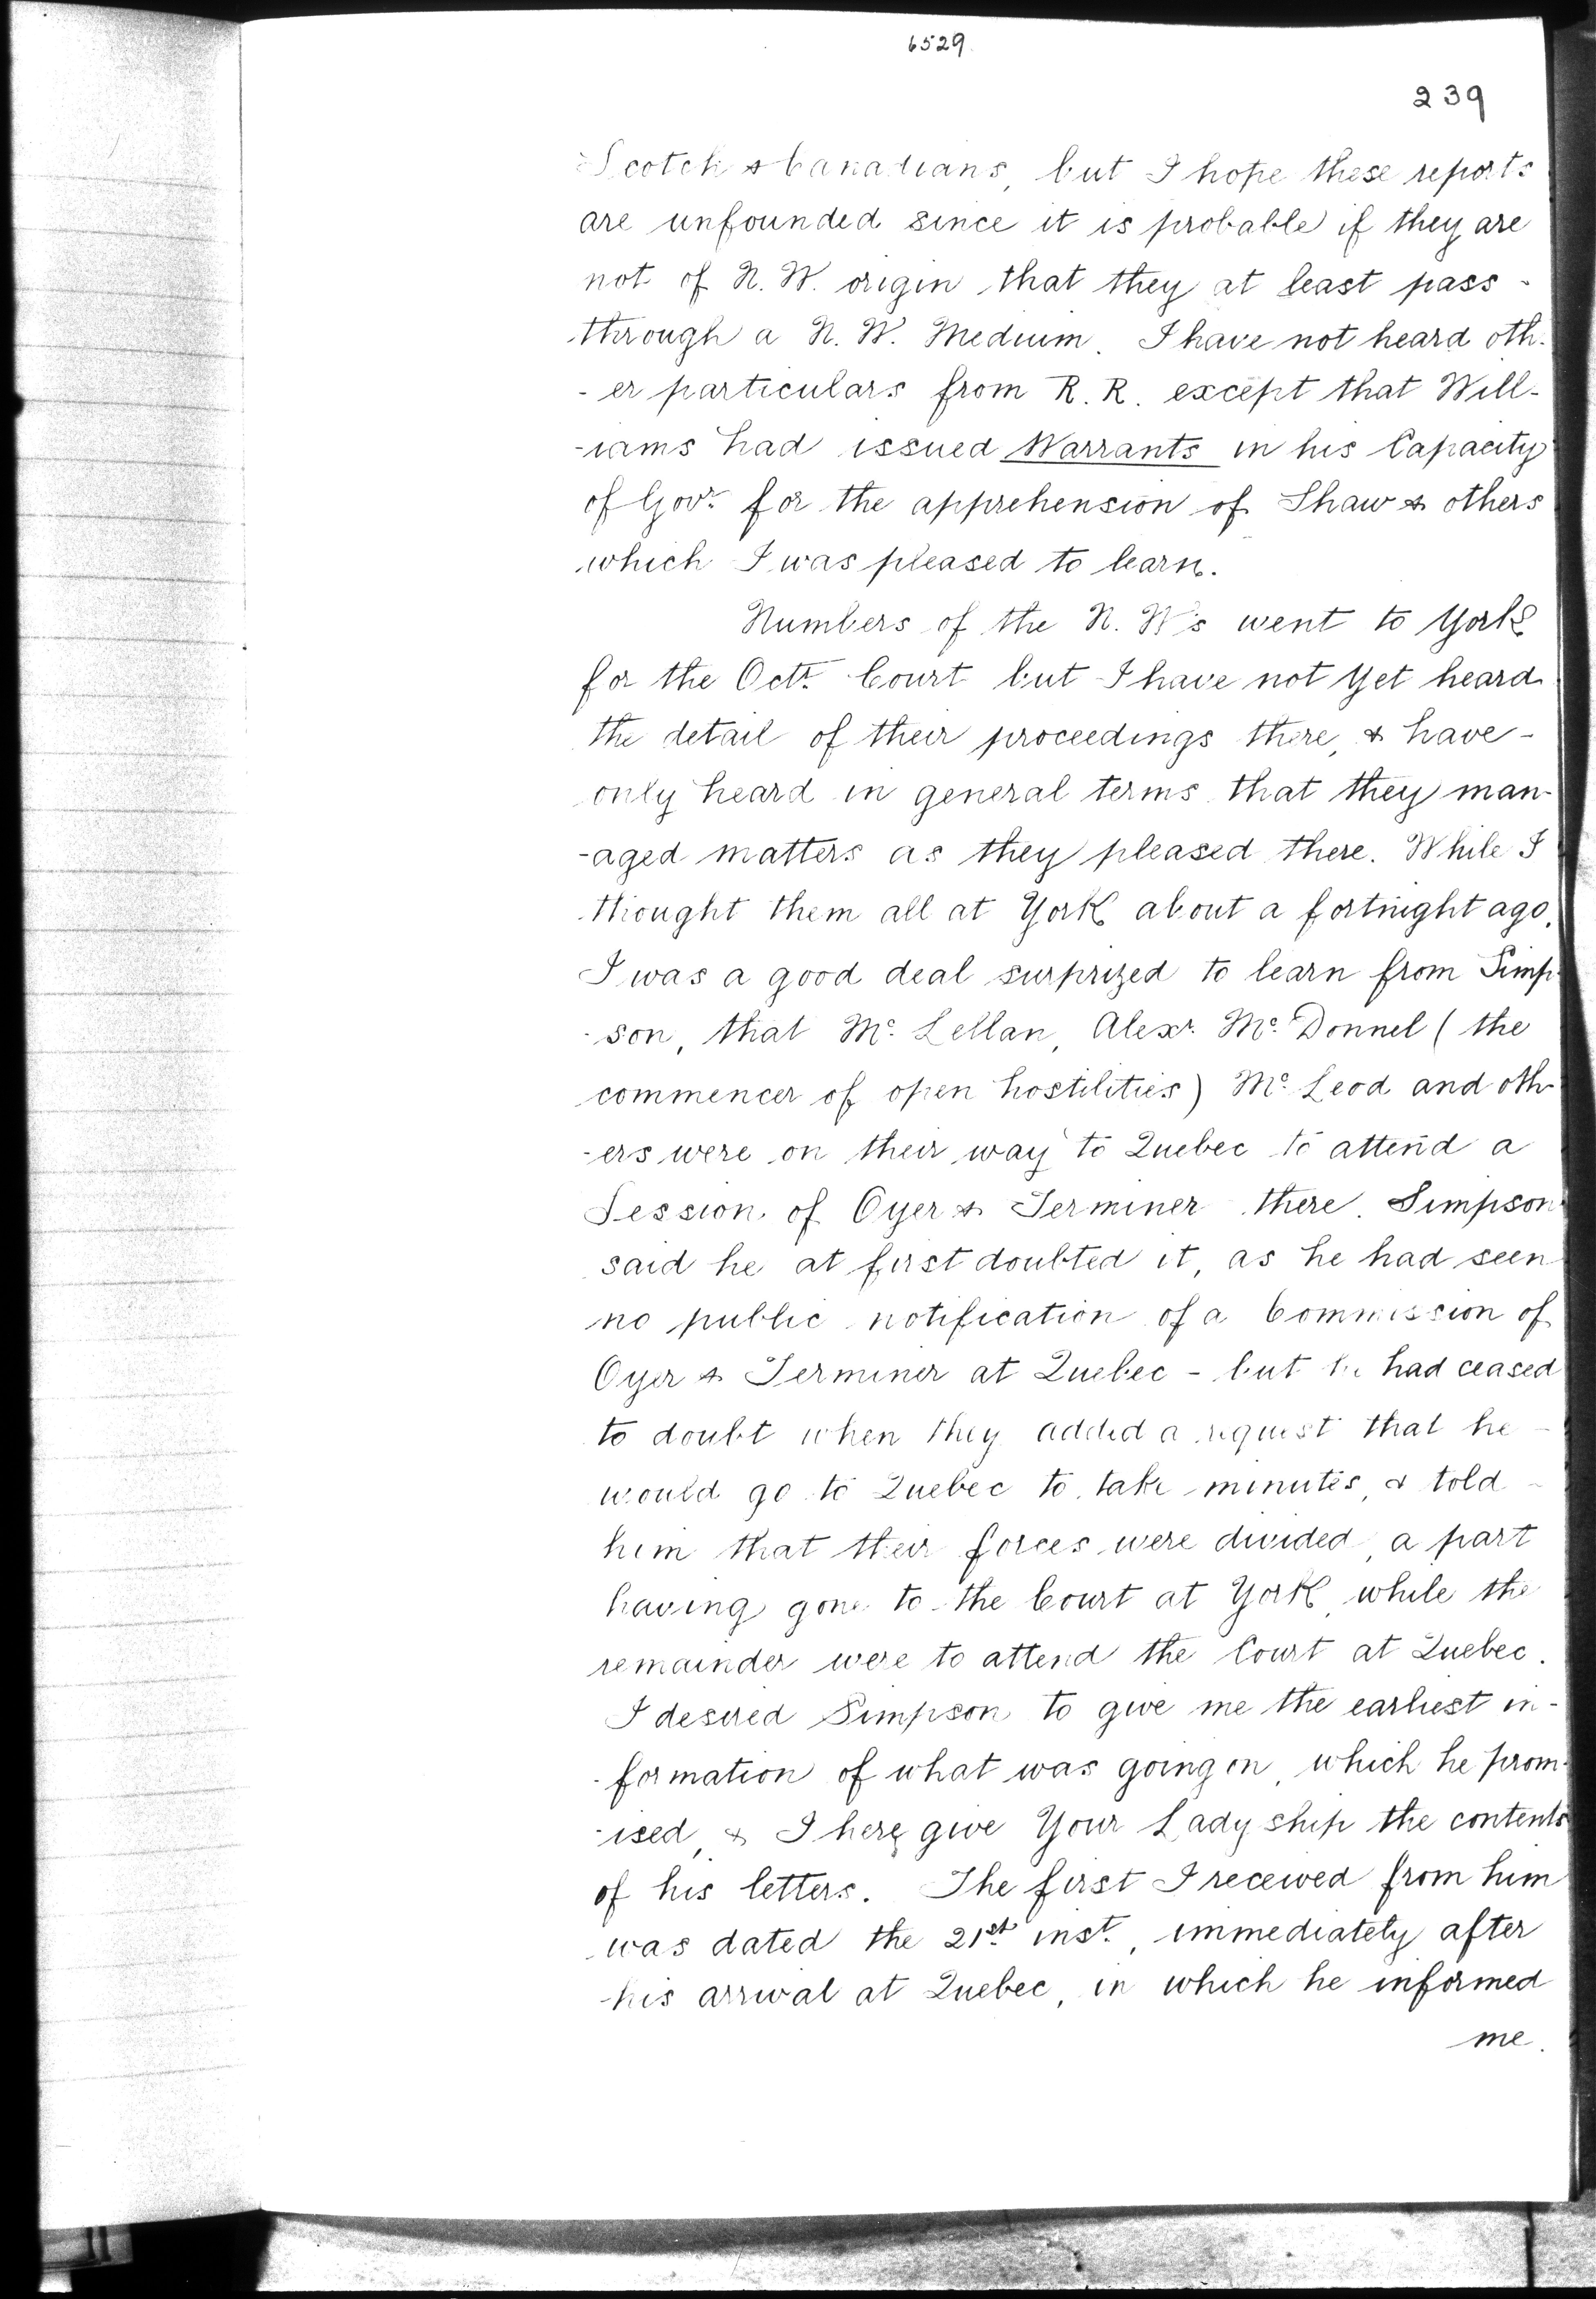 6529.
239
Scotch & Canadians, but I hope these reports
are unfounded since it is probable if they are
not of N. W. origin that they at least pass -
through a N. W. Medium. I have not heard oth-
-er particulars from R. R. except that Will-
-iams had issued Warrants in his Capacity
of Govr. for the apprehension of Shaw & others
which I was pleased to learn.
Numbers of the N. W's went to York
for the Octr. Court but I have not yet heard
the detail of their proceedings there, & have -
only heard in general terms that they man-
-aged matters as they pleased there. While I
thought them all at York about a fortnight ago,
I was a good deal surprized to learn from Simp-
-son, that Mc. Lellan, Alexr. Mc. Donnel (the
commencer of open hostilities) Mc. Leod and oth-
-ers were on their way to Quebec to attend a
Session of Oyer & Terminer there. Simpson
said he at first doubted it, as he had seen
no public notification of a Commission of
Oyer & Terminer at Quebec - but he had ceased
to doubt when they added a request that he -
would go to Quebec to take minutes, & told -
him that their forces were divided, a part
having gone to the Court at York, while the
remainder were to attend the Court at Quebec.
I desired Simpson to give me the earliest in-
-formation of what was going on, which he prom-
-ised, & I here give Your Ladyship the contents
of his letters. The first I received from him
was dated the 21st. inst., immediately after
his arrival at Quebec, in which he informed
me.